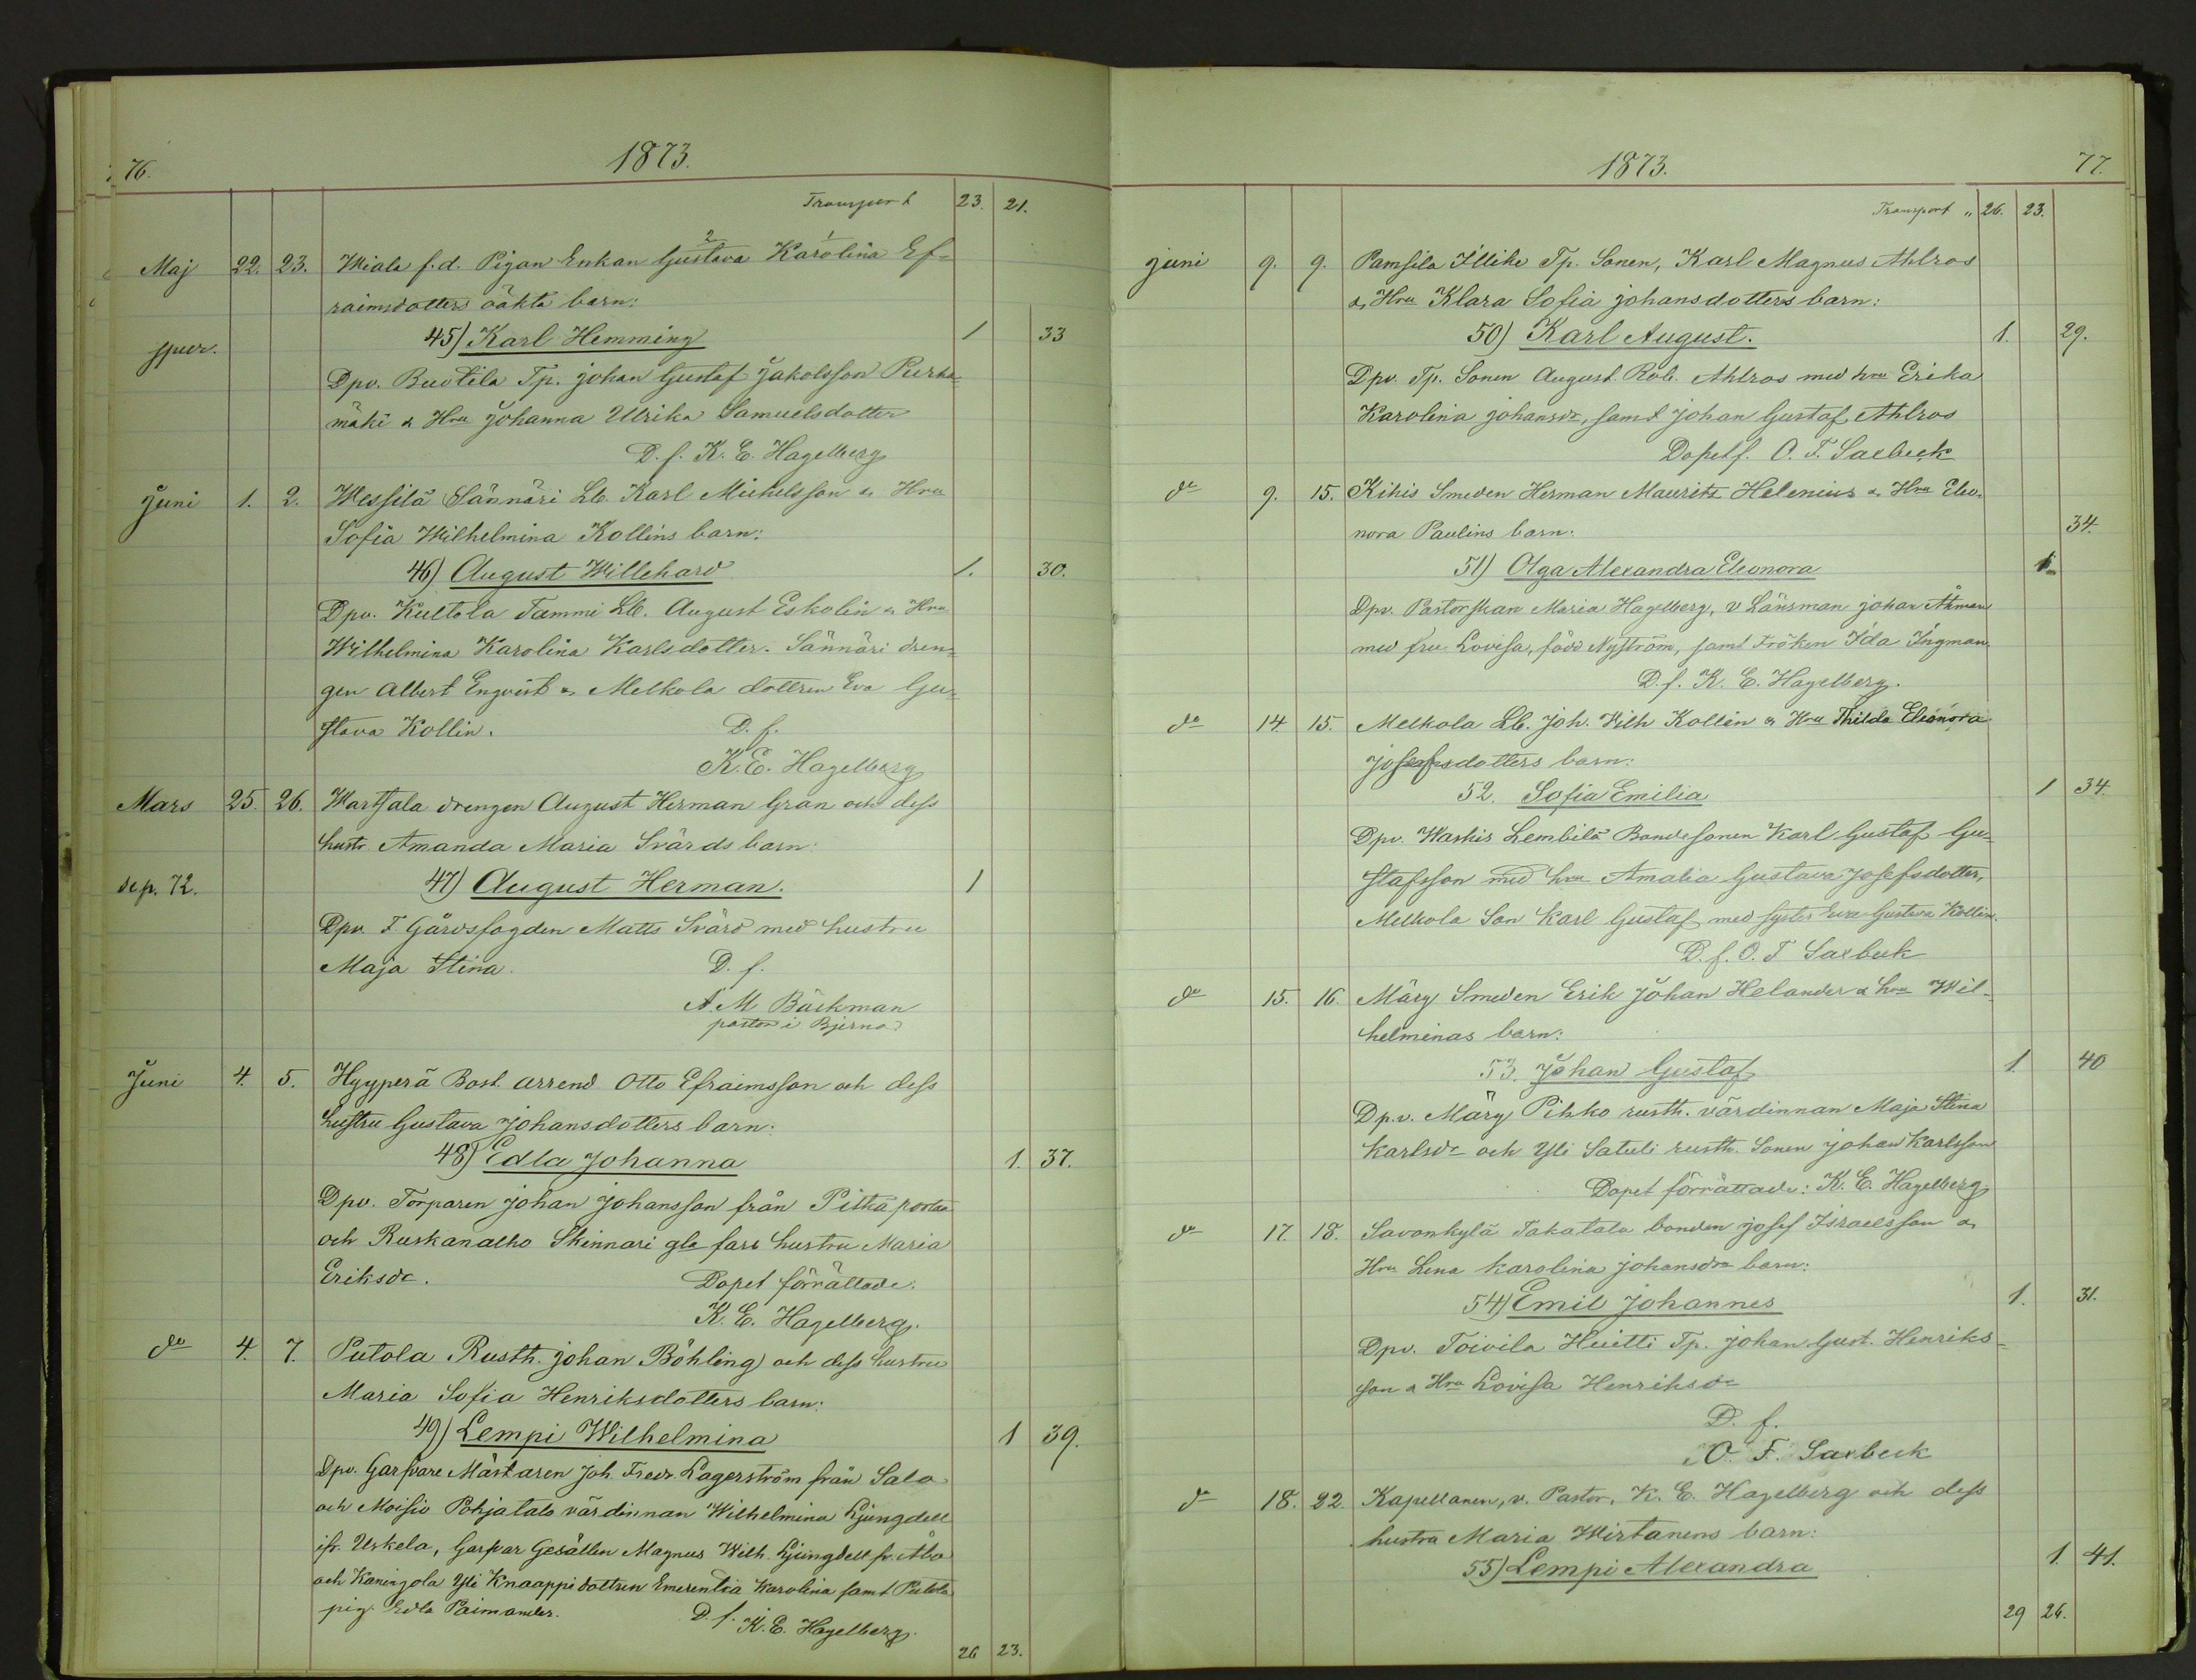 76.
1873.
Transport 23. 21.
Maj 22. 23. Wiala f.d. Pigan Enkan Gustava Karolina Ef-
2 1
raimsdotters oäkta barn:
spur. 45) Karl Hemming 1 33
Dpv. Buotila Tp. Johan Gustaf Jakobsson
mäki & Hru Johanna Ulrika Samuelsdotter
D. f. K. E. Hagelberg
Juni 1. 2. Wessilä Sännäri Lb. Karl Michelsson & Hru
Sofia Wilhelmina Kollins barn:
46) August Willehard 1. 30.
Dpv. Kultola Tammi Lb. August Eskolin & Hru
Wilhelmina Karolina Karlsdotter. Sännäri dren-
gen Albert Enqvist & Melkola dottren Eva Gu-
stava Kollin. D. f.
K. E. Hagelberg
Mars 25. 26. Wartsala drengen August Herman Gran och dess
hustr. Amanda Maria Svärds barn:
dep. 72. 47) August Herman. 1
Dpv. F. Gårdsfogden Matts Svärd med hustru
Maja Stina. D. f.
A. M Bäckman
pastor i Bjerno
Juni 4. 5. Hyyperä Bost. arrend Otto Efraimsson och dess
hustru Gustava Johansdotters barn:
48) Edla Johanna 1. 37.
Dpv. Torparen Johan Johansson från Pitkäporta
och Ruskanalho Skinnari gla fars hustru Maria
Eriksdr. Dopet förrättade:
K. E. Hagelberg.
do 4. 7. Putola Rusth. Johan Böhling och dess hustru
Maria Sofia Henriksdotters barn:
49) Lempi Wilhelmina 1 39.
Dpv. Garfvare Mästaren Joh. Fredr. Lagerström från Salo
och Moisio Pohjatalo värdinnan Wilhelmina Ljungdell
ifr. Uskela, Garfvar Gesällen Magnus Wilh. Ljungdell fr. Åbo
och Kaningola Yli Knaappi dottren Emerentia Karolina samt Putola
pig. Edla Paimander. D. f. K. E. Hagelberg.
26 23.
1873. 77.
Transport " 26. 23.
juni 9. 9. Pamsila Illike Tp. Sonen, Karl Magnus Ahlros
& Hru Klara Sofia johansdotters barn:
50) Karl August. 1. 29.
Dpv. Tp. Sonen August Rob. Ahlros med hru Erika
Karolina johansdr, samt Johan Gustaf Ahlros
Dopet f. O. F. Saxbeck
do 9. 15. Kihis Smeden Herman Mauritz Helenius & Hru Eleo-
nora Paulins barn: 34.
51) Olga Alexandra Eleonora 1
Dpv. Pastorskan Maria Hagelberg, v Länsman johan Åhman
med fru Lovisa, född Nyström, samt Fröken Ida Ingman
D. f. K. E. Hagelberg.
do 14. 15. Melkola Lb. Joh. Wilh Kollin & Hru Thilda Eleonora
Josefsdotters barn:
52. Sofia Emilia 1 34.
Dpv. Washis Lembilä Bondesonen Karl Gustaf Gu-
stafsson med hru Amalia Gustava Josefsdotter,
Melkola Son Karl Gustaf med syster Eva Gustava Kollin.
D. f. O. F Saxbeck
do 15. 16. Märy Smeden Erik Johan Helander & hru Wil-
helminas barn:
53. Johan Gustaf 1. 40
Dp.v. Märy Pihko rusth. värdinnan Maja Stina
Karlsdr och Yli Satuli rusth. Sonen johan Karlsson
Dopet förrättade: K. E. Hagelberg
do 17. 18. Savonkylä Takatalo bonden josef Israelsson &
Hru Lena Karolina johansdrs barn:
54) Emil Johannes 1. 31.
Dpv. Toivila Huitti Tp. johan Gust. Henriks-
son & Hru Lovisa Henriksdr
D. f.
O. F. Saxbeck
do 18. 22 Kapellanen, v. Pastor, K. E. Hagelberg och dess
hustru Maria Wirtanens barn:
55) Lempi Alexandra 1. 41.
29 24.